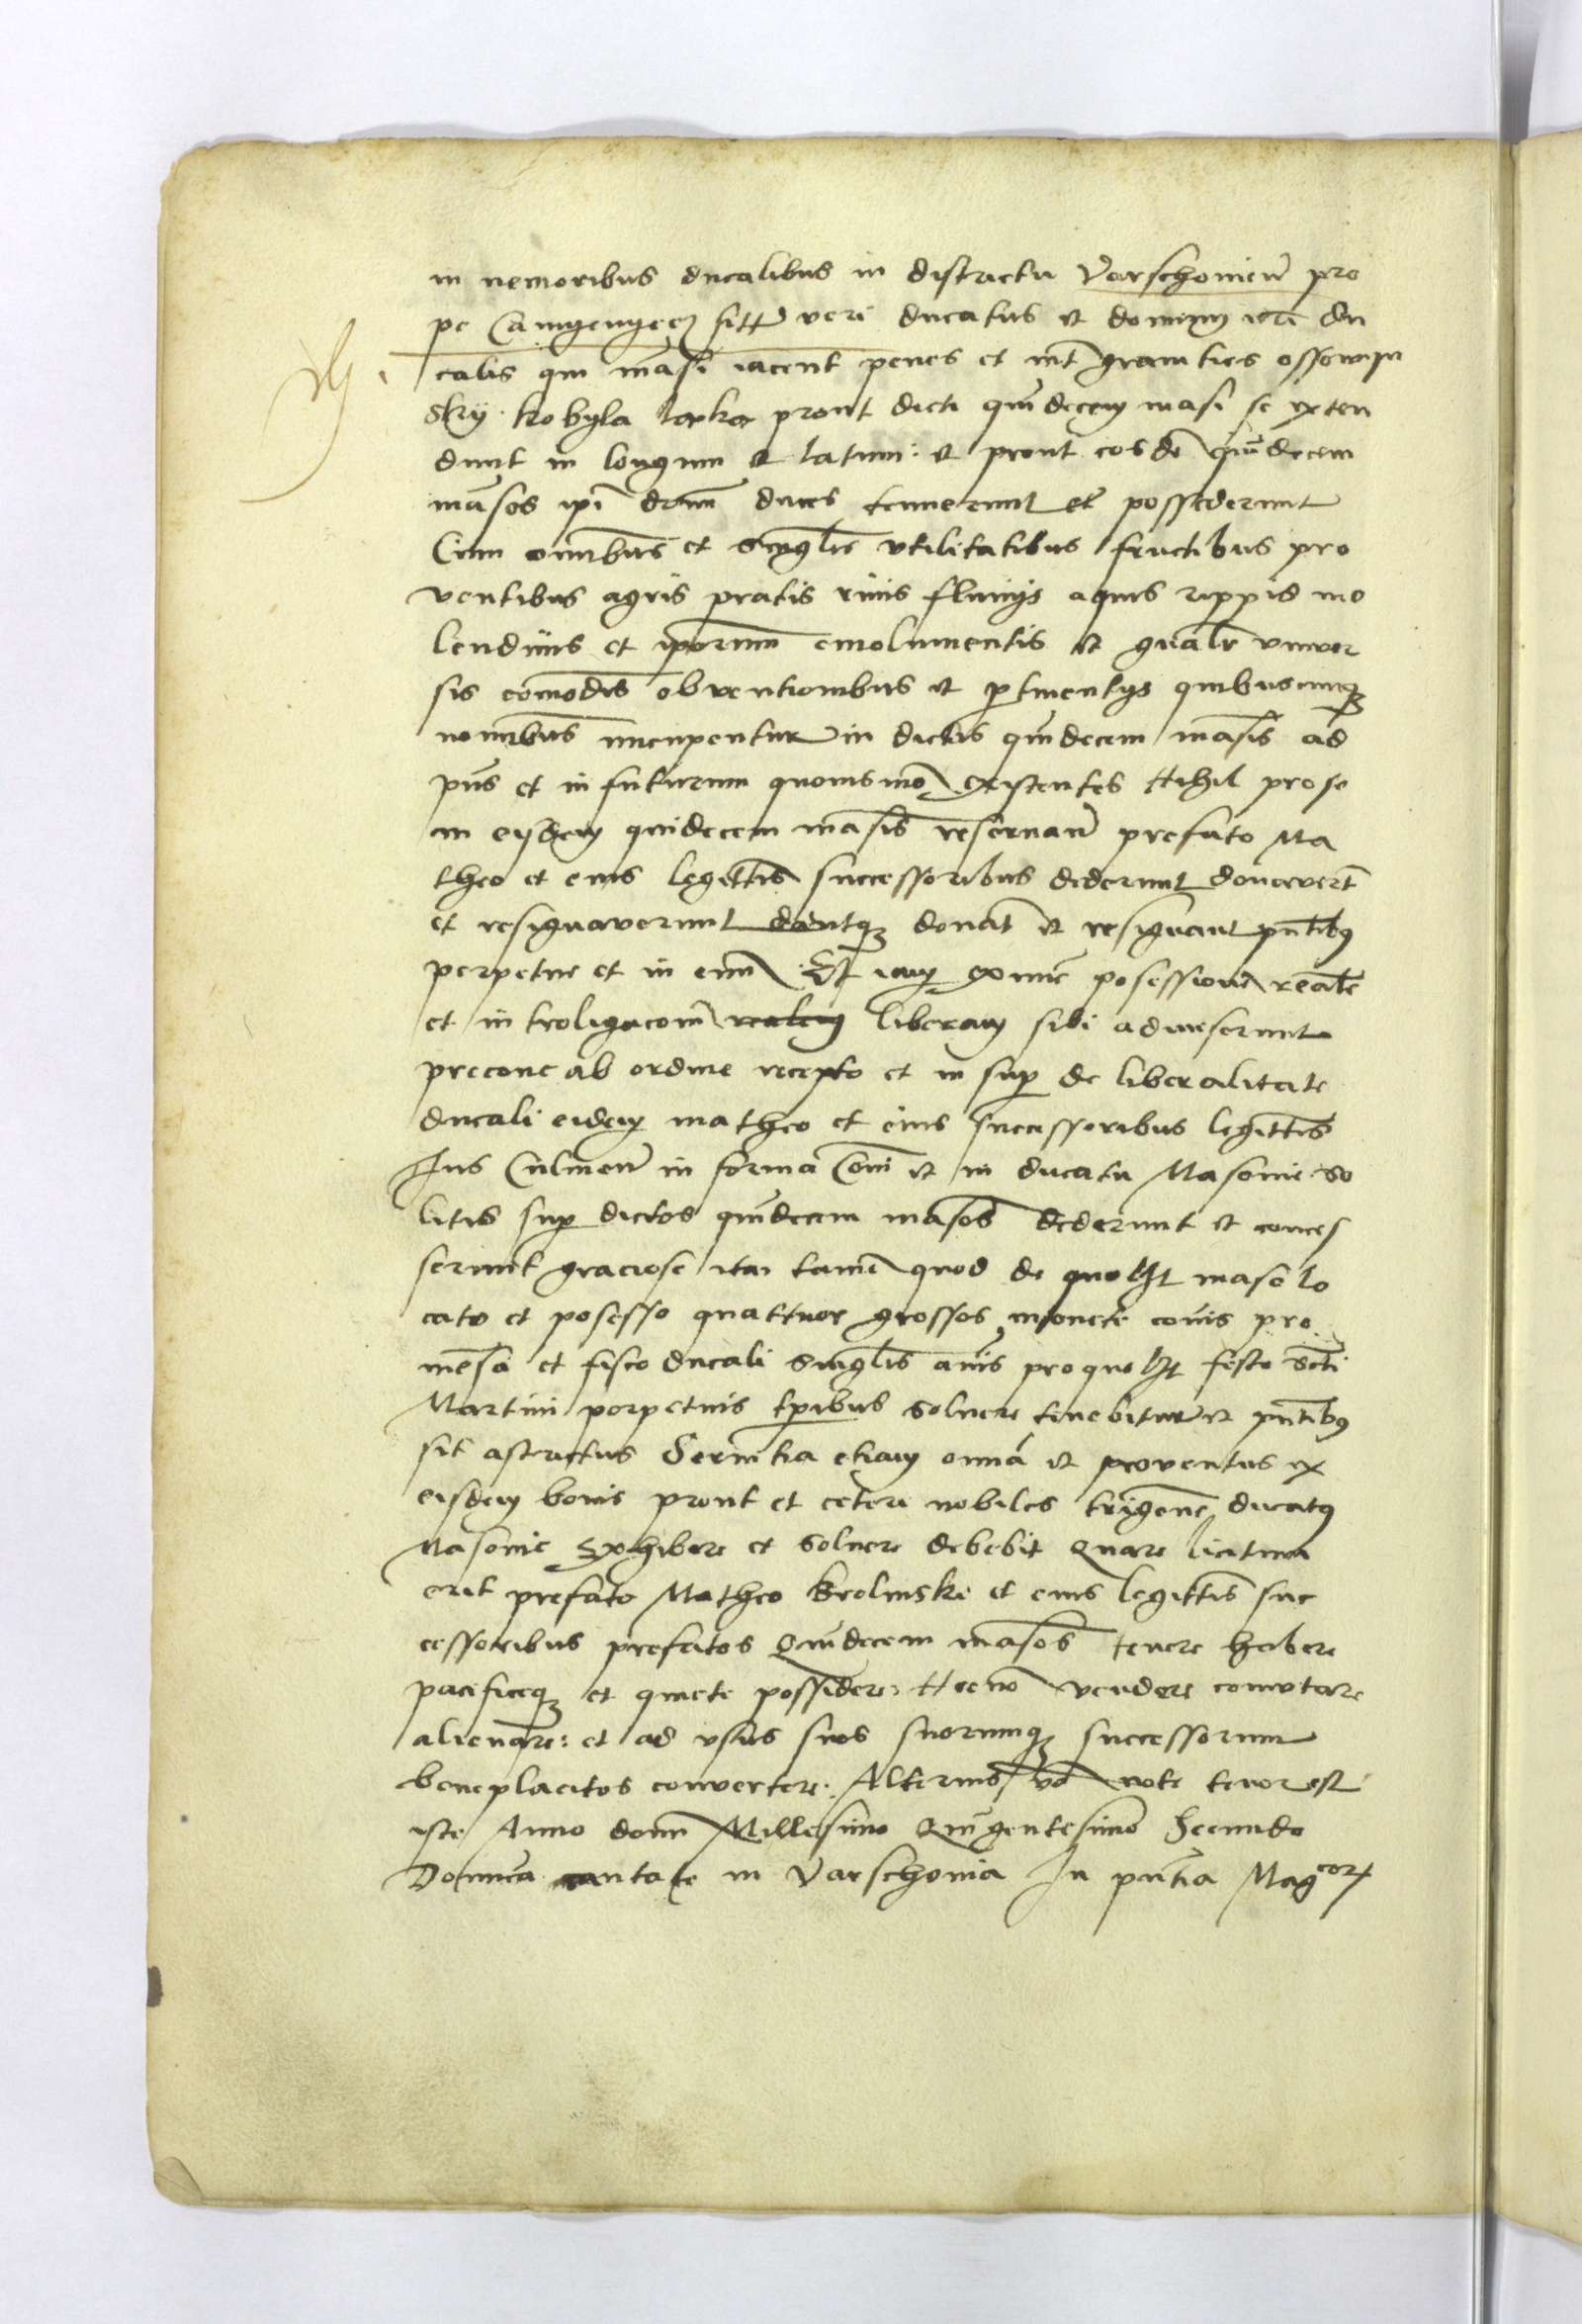 in nemoribus ducalibus in districtu Varschouien pro
pe sitt veri ducatus et dominij du
calis qui masi iacent penes et int granities ossowij
skij. kobyla lapka prout dicti quindecem masi se exten
dunt in longum et latum: et prout eosde quindecem
mansos ipi domi duces tenuerunt et possederunt
Cum omnibus et singlis vtilitatibus fructibus pro
ventibus agris pratis riuis fluuijs aquis rippis mo
lendinis et ipsorum emolumentis et gnalr vniuer
sis comodis obventionibus et ptinentijs quibuscumq
nominibus nuncupentur in dictis quindecem masis ad
pns et in futurum quouismo existentes Nihil pro se
in eisdem quindecem masis reseruan prefato Ma
theo et eius legittis successoribus dederunt donavert
et resignaverunt dantq donat et resignant pntibus
perpetue et in euum Et iam ex nunc posessione reale
et introligacom realem liberam sibi admiserunt
precone ab ordine recepto et in sup de liberalitate
ducali eidem matheo et eius successoribus legittis
Jus Culmen in forma Comi et in ducatu Masouie so
litis sup dictos quindecem masos dederunt et conces
serunt graciose ita tame quod de quolibet maso lo
cato et posesso quattuor grossos monete cois pro
mensa et fisco ducali singlis annis pro quolibet festo scti
Martini perpetuis tpibus soluere tenebitur et pntibus
sit astrictus Seruitia etiam omnia et proventus ex
eisdem bonis prout et ceteri nobiles trigene ducatus
Masouie Exhibere et soluere debebit Quare licitum
erit prefato Matheo Krolinski et eius legittis suc
cessoribus prefatos Quindecem masos tenere habere
pacificeq et quiete possidere: Necno vendere comutare
alienare: et ad vsus suos suorumq successorum
beneplacitos convertere: Alterius vo note tenor est
iste Anno domi Millesimo Quingentesimo Secundo
Dominica cantate in Varschouia In pntia Magcor